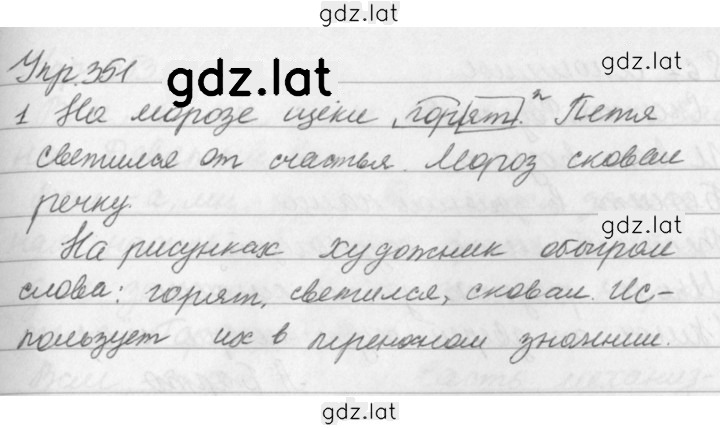 gdz.lat
Упр. 351
gdz.lat
gdz.lat
1 На морозе щёки горят. Петя
светился от счастья. Мороз сковал
речку.
gdz.lat
На рисунках художник обыграл
слова: горят, светился, сковал. Ис-
пользует их в переносном значении.
gdz.lat